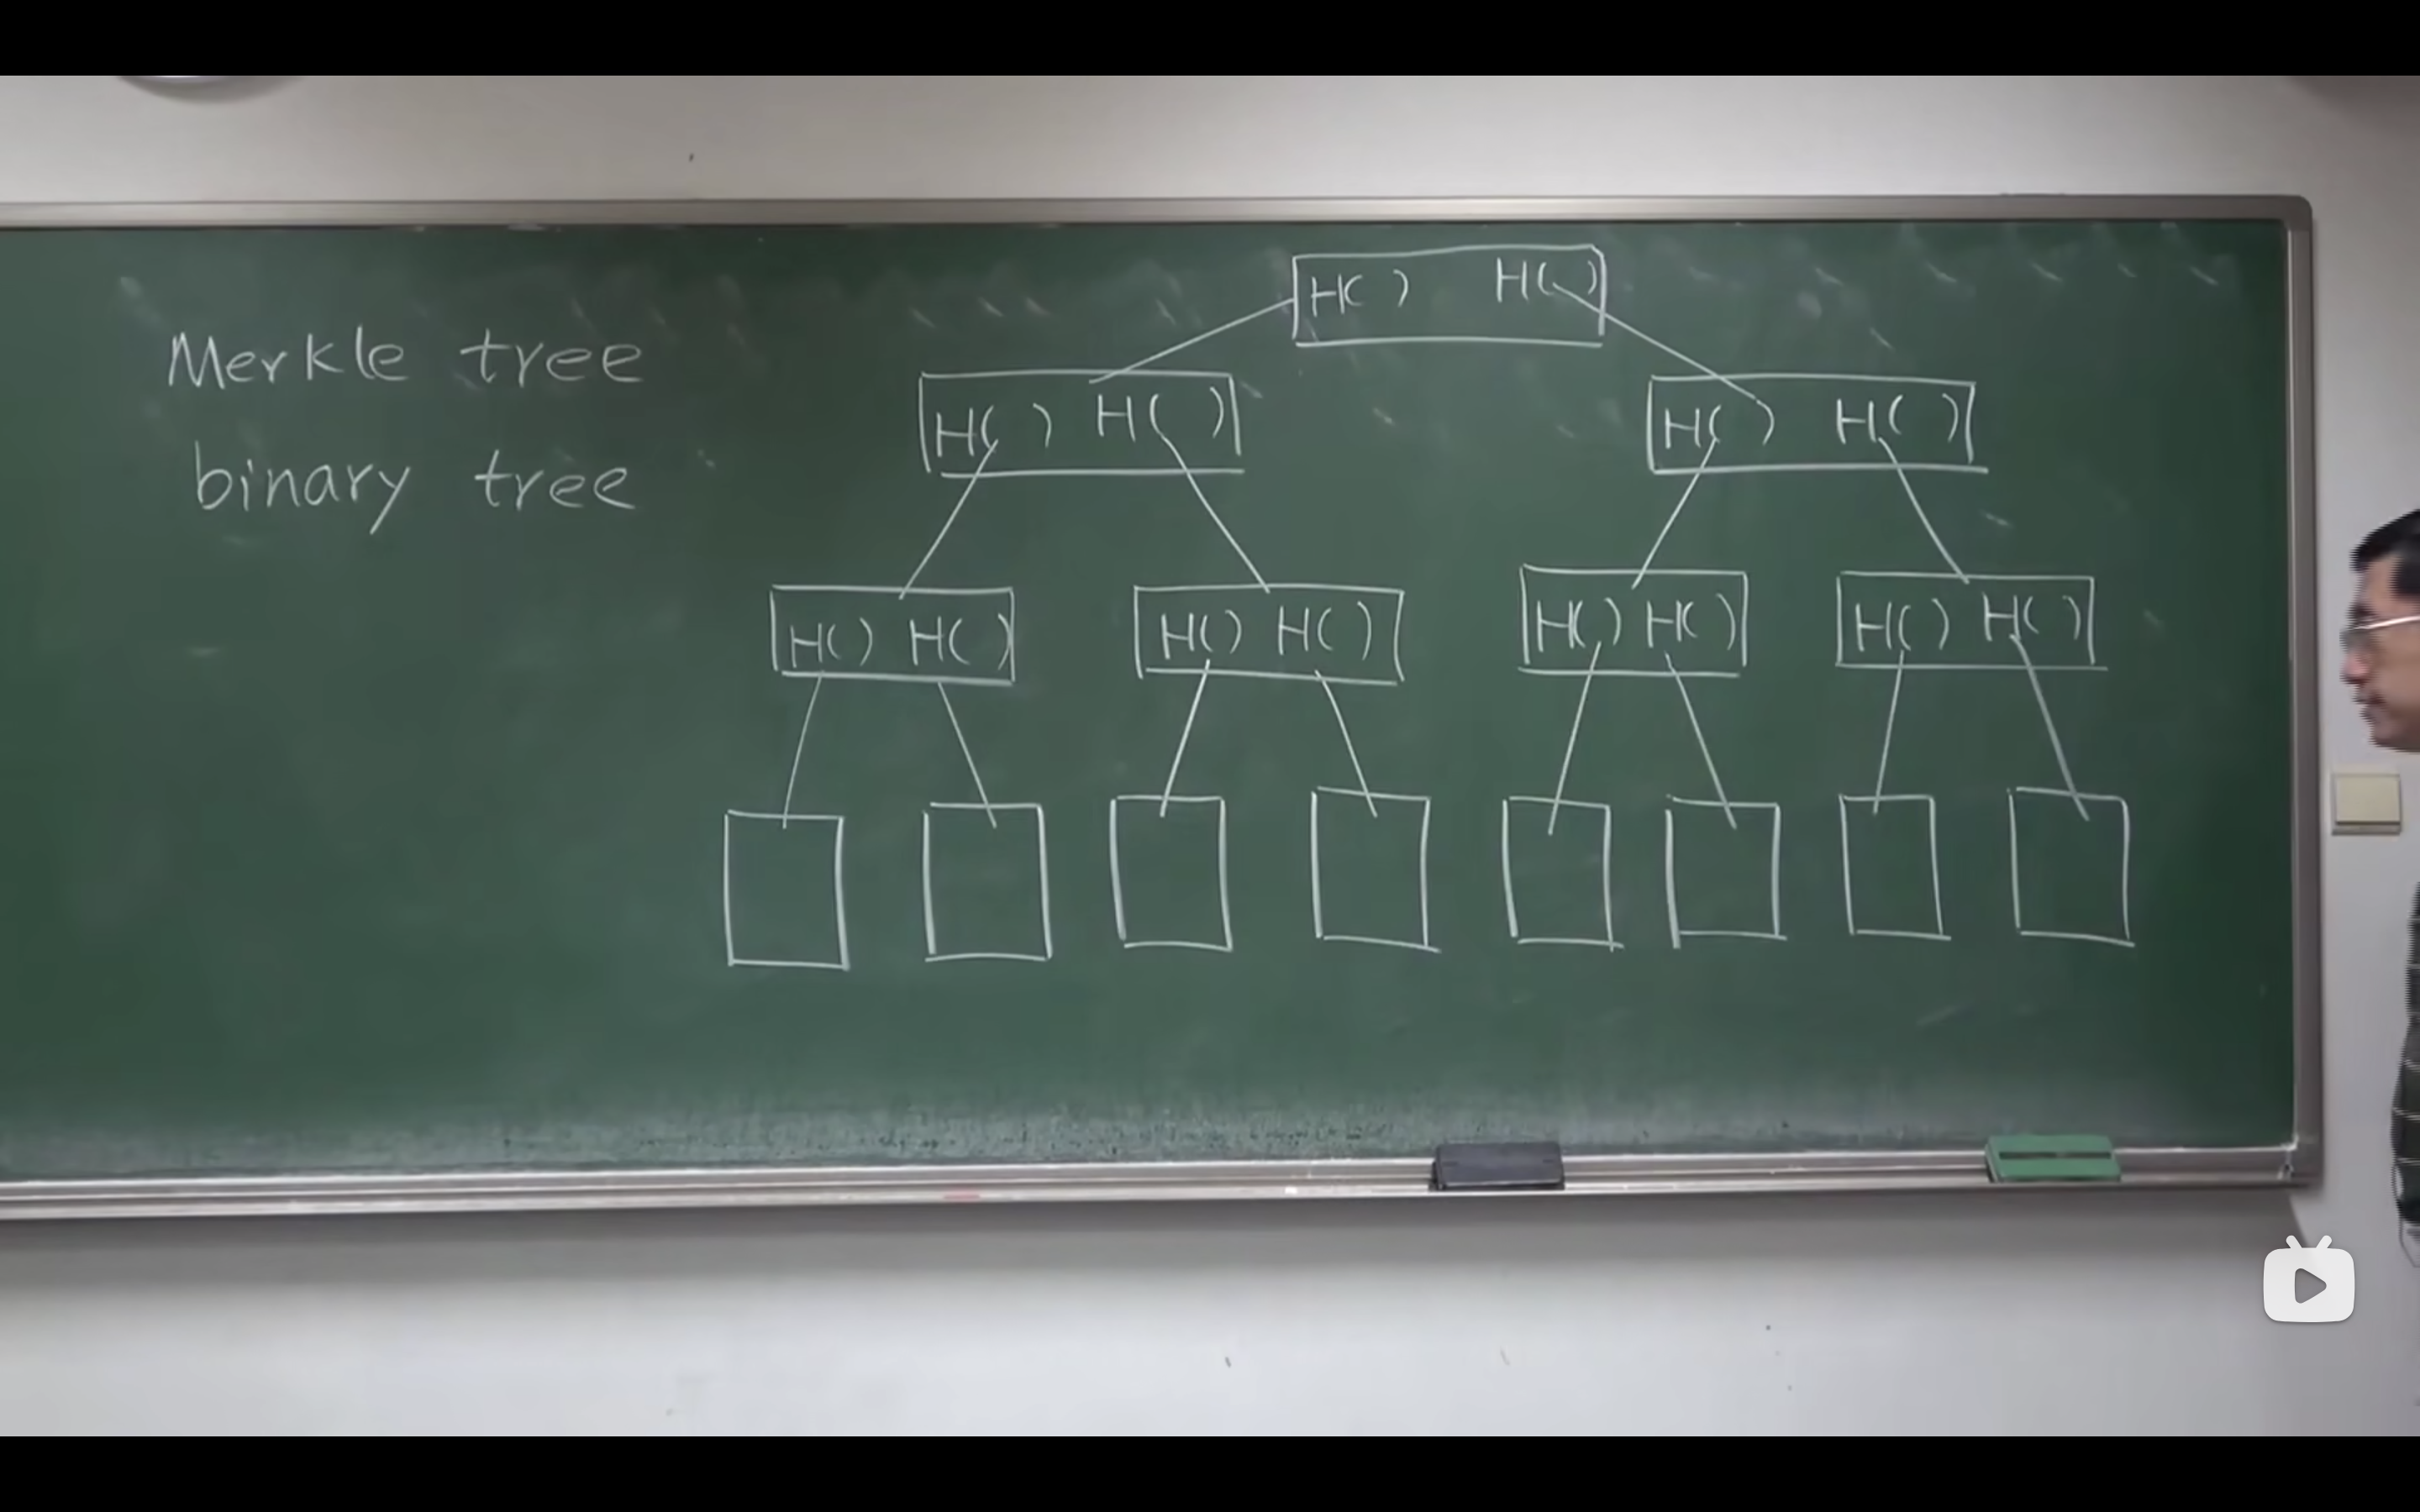 Merkle tree
binary tree
H( ) H( )
H( ) H( )
H( ) H( )
H( ) H( )
H( ) H( )
H( ) H( )
H( ) H( )